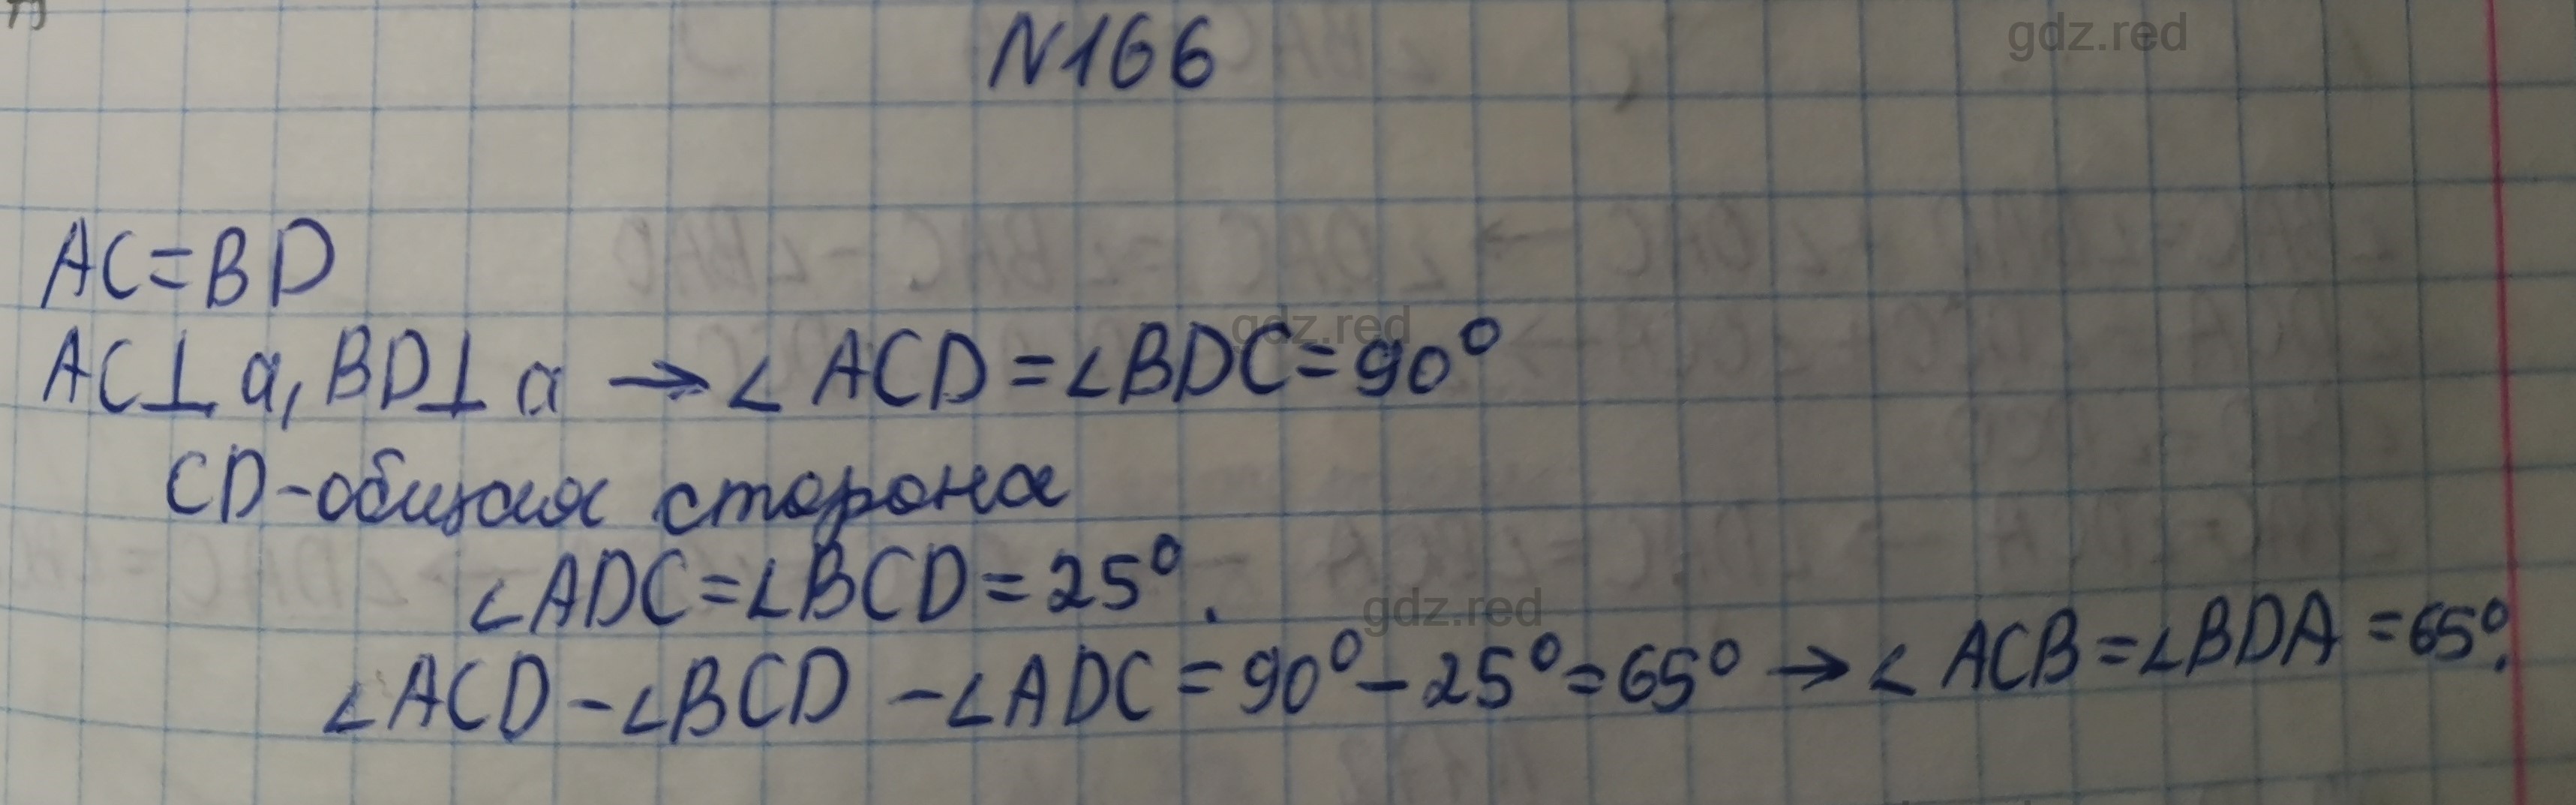 N166
AC=BD
AC⊥a, BD⊥a → ∠ACD=∠BDC=90°
CD-общая сторона
∠ADC=∠BCD=25°.
∠ACD-∠BCD -∠ADC=90°-25°=65° → ∠ACB=∠BDA=65°.
gdz.red
gdz.red
gdz.red